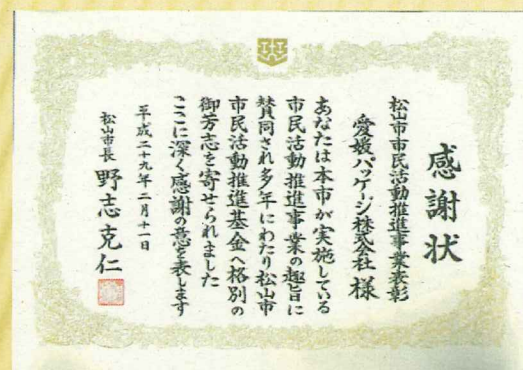 感謝状
松山市市民活動推進事業表彰
愛媛パッケージ株式会社 様
あなたは本市が実施している
市民活動推進事業の趣旨に
賛同され多年にわたり松山市
市民活動推進基金へ格別の
御芳志を寄せられました
ここに深く感謝の意を表します
平成二十九年二月十一日
松山市長 野志克仁